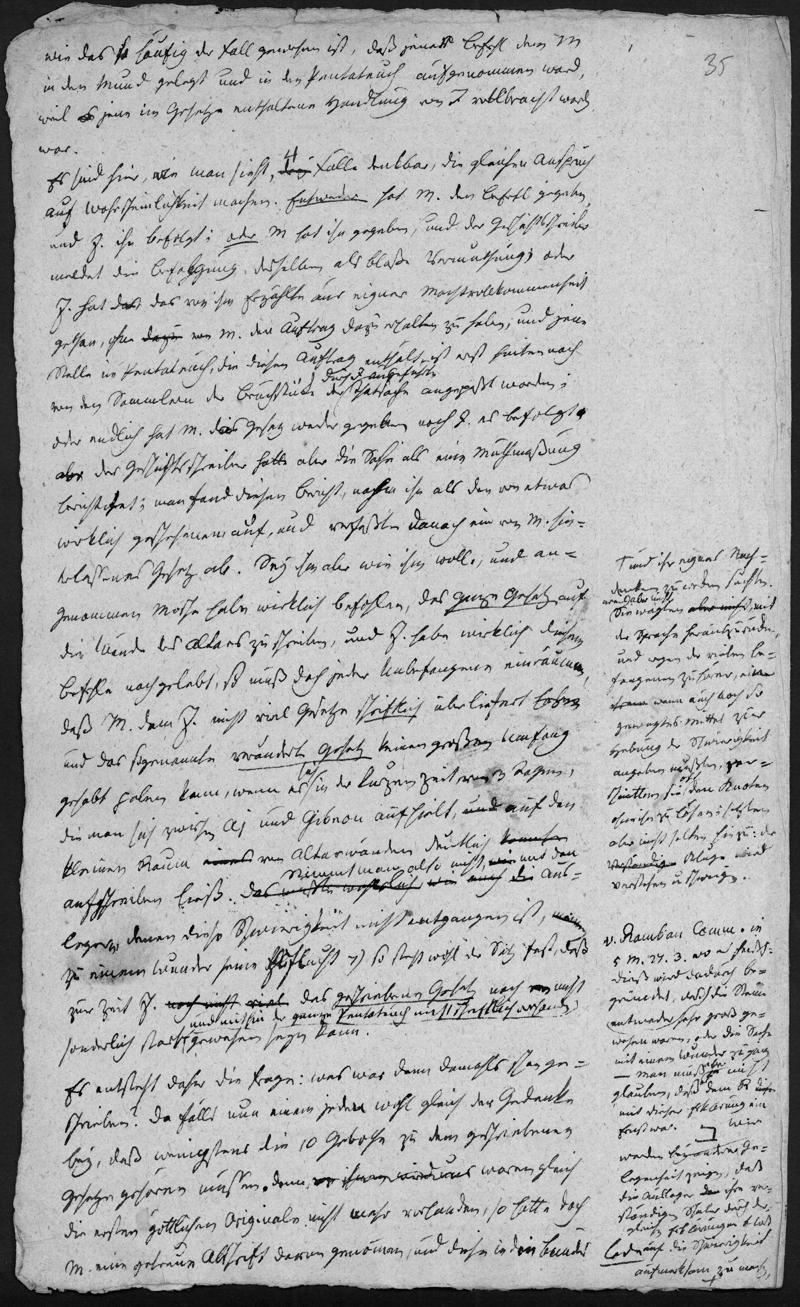 35
wie das so häufig der Fall gewesen ist, daß jener Befehl dem M
in den Mund gelegt und in den Pentateuch aufgenommen ward,
weil jene im Gesetze enthaltene Handlung von J vollbracht worden
war.
Es sind hier, wie man sieht, 4 Fälle denkbar, die gleichen Anspruch
auf Wahrscheinlichkeit machen. Entweder hat M. den Befehl gegeben,
und J. ihn befolgt; oder M hat ihn gegeben, und der Geschichtschreiber
meldet die Befolgung desselben als bloße Vermuthung; oder
J. hat das von ihm Erzählte aus eigner Machtvollkommenheit
gethan, ohne dazu von M. den Auftrag dazu erhalten zu haben, und jene
Stelle im Pentateuch, die diesen Auftrag enthält, ist erst hinten nach
von den Sammlern der Bruchstücke der Thatsache angepaßt worden;
oder endlich hat M. das Gesetz weder gegeben noch J. es befolgt
aber der Geschichtschreiber hatte aber die Sache als eine Muthmaßung
berichtet; man fand diesen Bericht, nahm ihn als den von etwas
wirklich geschehenem auf, und verfaßte danach ein von M. hin-
terlassenes Gesetz ab. Sey ihm aber wie ihm wolle, und an-
genommen Moses habe wirklich befohlen, das ganze Gesetz auf
die Wände des Altars zu schreiben, und J. habe wirklich diesem
Befehle nachgelebt, so muß doch jeder Unbefangene einräumen,
daß M. dem J. nicht viel Gesetze schriftlich überliefert haben
und das sogenannte Gesetz keinen großen Umfang
gehabt haben kann, wenn es sich in der kurzen Zeit von 3 Tagen,
die man sich zwischen Aj und Gibeon aufhielt, und auf den
kleinen Raum von Altarwänden deutlich
aufschreiben ließ. Nimmt man also nicht, mit den Aus-
legern, denen diese Schwierigkeit nicht entgangen ist,
zu einem Wunder seine Zuflucht so steht wohl der Satz fest, daß
zur Zeit J. noch nicht viel das geschriebene Gesetz noch nicht
und mithin der ganze Pentateuch nicht schriftlich vorhanden
sonderlich stark gewesen seyn kann.
Es entsteht daher die Frage: was war denn damahls schon ge-
schrieben? Da fällt nun einem jeden wohl gleich der Gedanke
bey, daß wenigstens die 10 Gebothe zu dem geschriebenen
Gesetze gehören müssen. denn waren gleich
die ersten göttlichen Originale nicht mehr vorhanden, so hatte doch
M. eine getreue Abschrift davon genommen, und diese in den Bundes
und ihr eignes Nach-
denken zu suchten.
Sie wagten aber nicht, mit
der Sprache herauszurücken,
und wegen der vielen be-
fangenen Zuhörer,
wenn auch noch so
gewagtes Mittel zur
Hebung der Schwierigkeit
angeben mußten, zer-
schnitten sie den Knoten
ohne ihn zu lösen; setzten
aber nicht selten hinzu: der
Kluge wird
verstehen u schweigen.
v. Ramban Comm. in
5 M. 27. 3. wo
dieß wird dadurch be-
gründet, daß die Steine
entweder sehr groß ge-
wesen waren, oder die Sache
mit einem Wunder zugang
— Man muß aber nicht
glauben, daß dem R
mit dieser Erklärung ein
Ernst war. Wir
werden bey andrer Ge-
legenheit zeigen, daß
die Ausleger ihre ver-
ständigen Schüler durch der-
gleichen Erklärungen bloß
auf die Schwierigkeit
aufmerksam zu machen